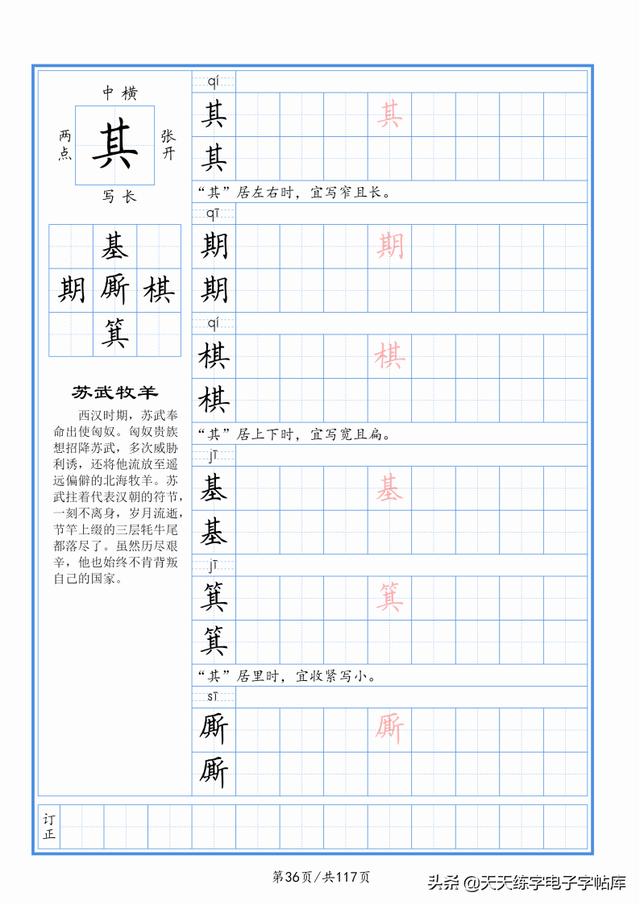 中横
两点
其
张开
写长
基
期厮棋
箕
苏武牧羊
西汉时期，苏武奉
命出使匈奴。匈奴贵族
想招降苏武，多次威胁
利诱，还将他流放至遥
远偏僻的北海牧羊。苏
武拄着代表汉朝的符节，
一刻不离身，岁月流逝，
节竿上缀的三层牦牛尾
都落尽了。虽然历尽艰
辛，他也始终不肯背叛
自己的国家。
qí
其 其
其
“其”居左右时，宜写窄且长。
qī
期 期
期
qí
棋 棋
棋
“其”居上下时，宜写宽且扁。
jī
基 基
基
jī
箕 箕
箕
“其”居里时，宜收紧写小。
sī
厮 厮
厮
订正
第36页/共117页
头条 @天天练字电子字帖库